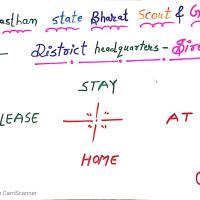 asthan state Bharat Scout & G
- District headquarters - Siro
STAY
LEASE AT
HOME
CamScanner